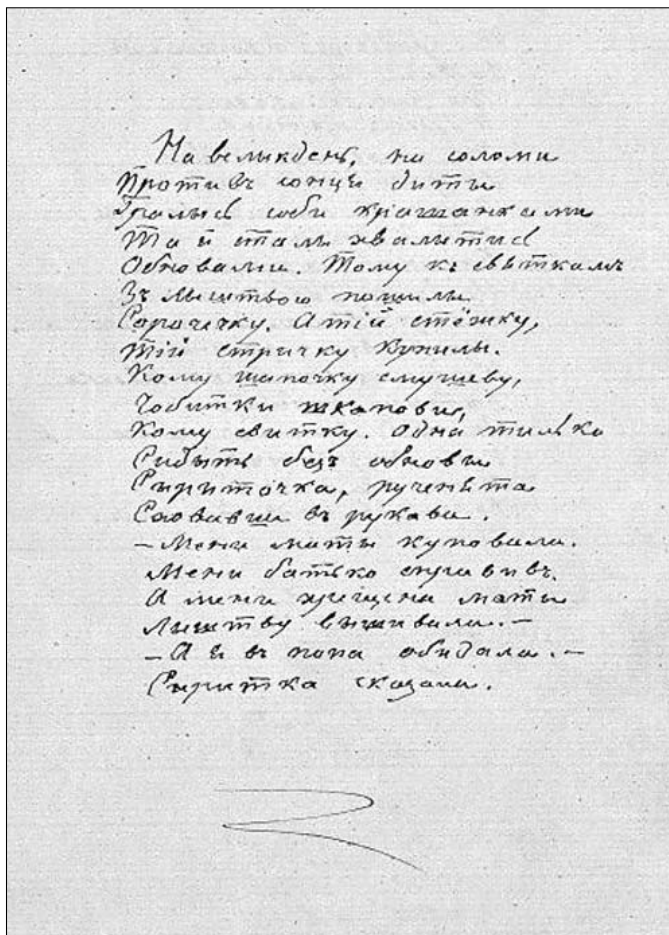 На великдень, на соломи
Противъ сонця диты
Гралысь соби крашанками
Та й сталы хвалытись
Обновами. Тому къ святкамъ
Зъ лыштвою пошылы
Сорочечку. А тій стёжку,
Тій стричку купилы.
Кому шапочку смушеву,
Чобитки шкапови,
Кому свитку. Одна тилько
Сидыть безъ обновы
Сыриточка, рученята
Сховавши въ рукава.
– Мени маты куповала.
Мени батько справивъ.
А мени хрещена маты
Лыштву вышивала. –
– А я въ попа обидала. –
Сыритка сказала.